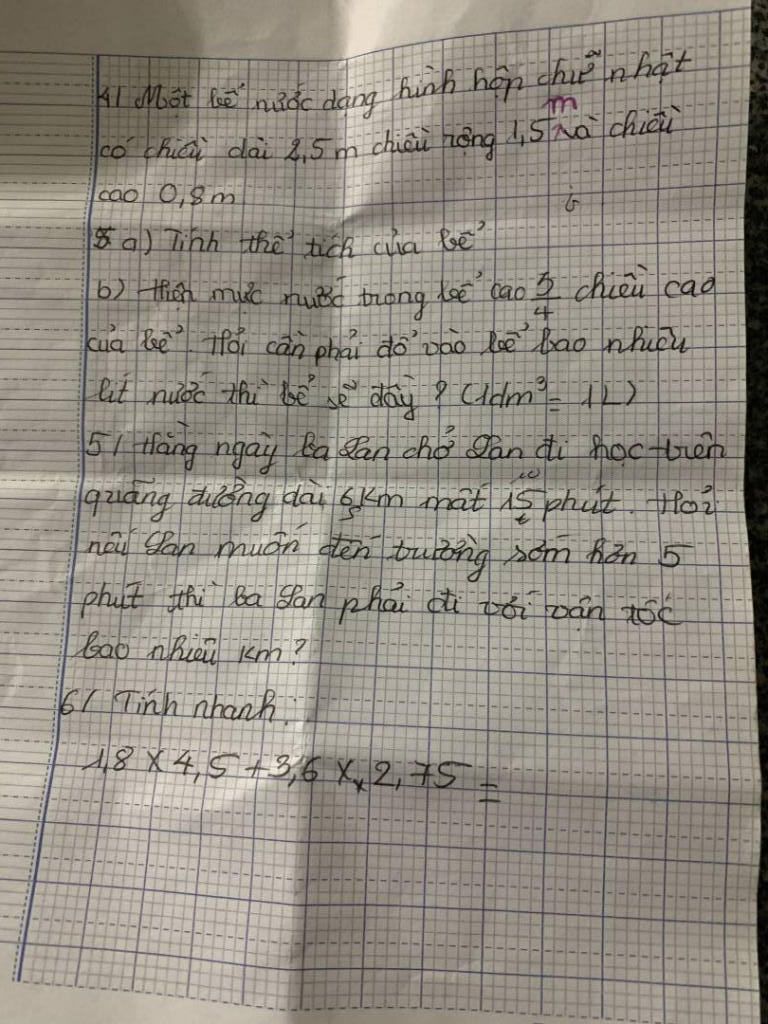 4/ Một bể nước dạng hình hộp chữ nhật
có chiều dài 2,5 m chiều rộng 1,5 m và chiều
cao 0,8 m
a) Tính thể tích của bể
b) Hiện mực nước trong bể cao 3/4 chiều cao
của bể. Hỏi cần phải đổ vào bể bao nhiêu
lít nước thì bể sẽ đầy? (1dm³ = 1L)
5/ Hằng ngày ba Lan chở Lan đi học trên
quãng đường dài km mất 15 phút. Hỏi
nếu Lan muốn đến trường sớm hơn 5
phút thì ba Lan phải đi với vận tốc
bao nhiêu km?
6/ Tính nhanh:
1,8 x 4,5 + 3,6 x 2,75 =